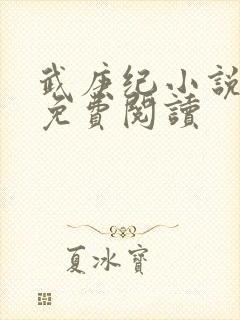 武庚纪小說
免費閱讀
夏冰寶